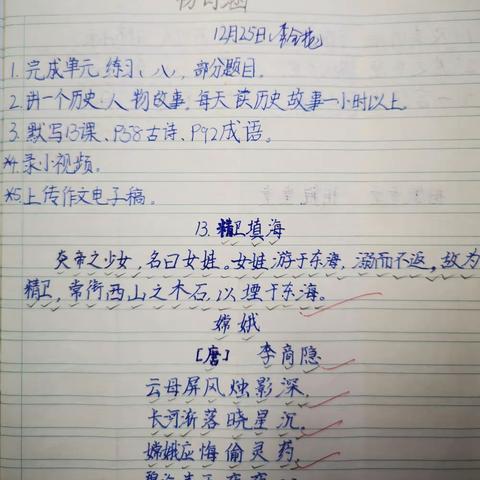 12月25日
1. 完成单元练习、八,部分题目。
2. 讲一个历史人物故事,每天读历史故事一小时以上
3. 默写13课、P58古诗、P92成语。
*4.录小视频。
*5.上传作文电子稿。
13.精卫填海
炎帝之少女,名曰女娃。女娃游于东海,溺而不返,故为
精卫,常衔西山之木石,以堙于东海。
嫦娥
[唐] 李商隐
云母屏风烛影深,
长河渐落晓星沉。
嫦娥应悔偷灵药,